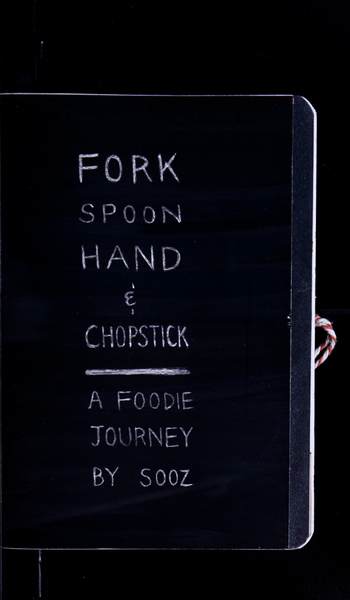 FORK
SPOON
HAND
&
CHOPSTICK
A FOODIE
JOURNEY
BY SOOZ